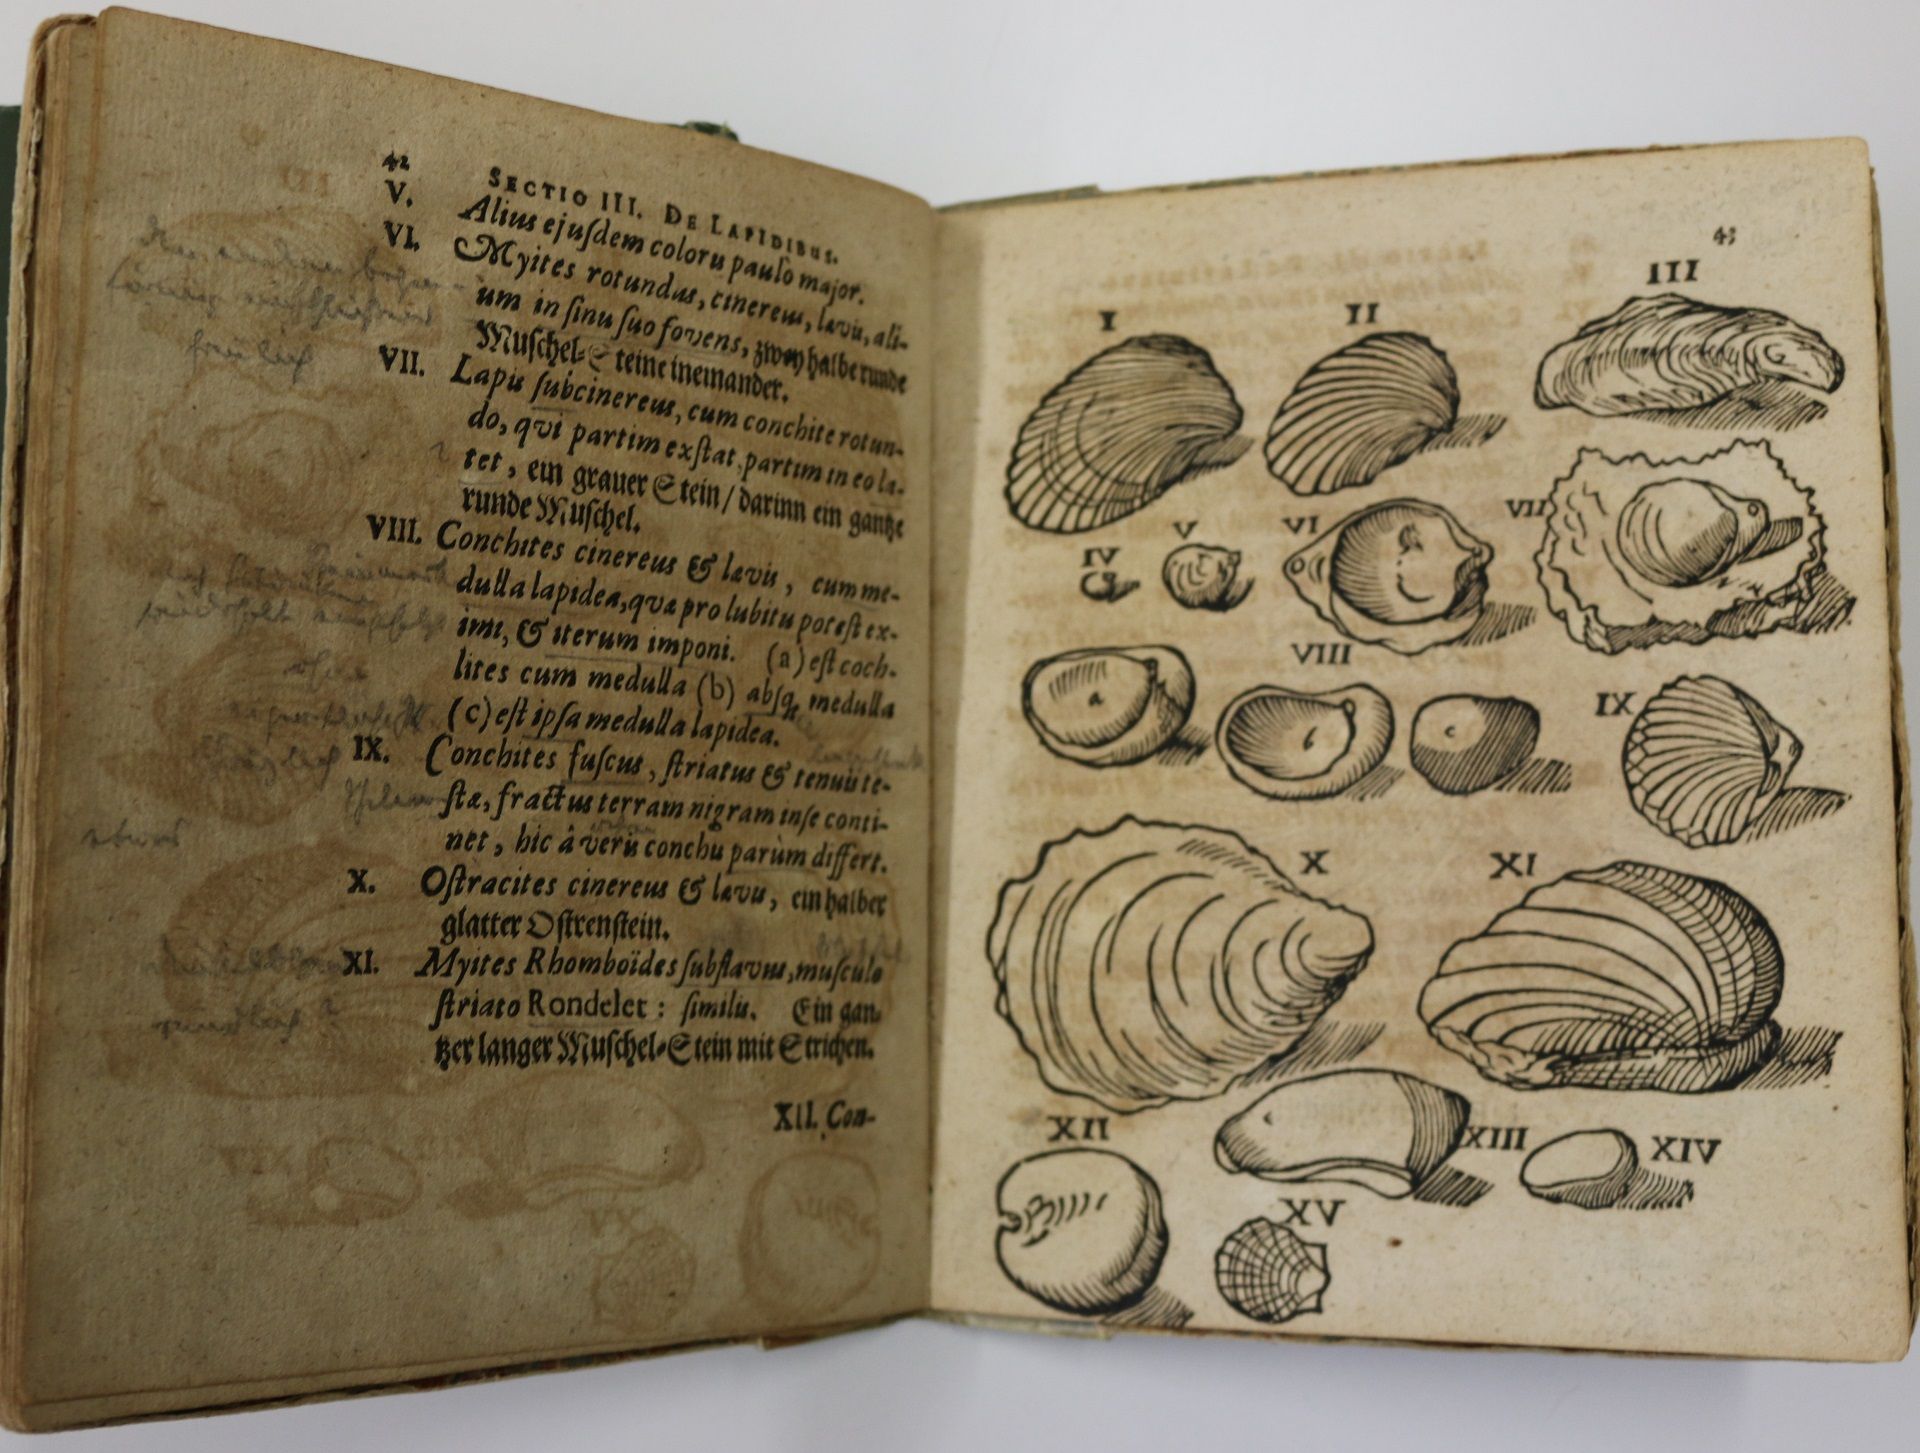 42
SECTIO III. DE LAPIDIBUS.
V. Alius ejuſdem coloris paulò major.
VI. Myites rotundus, cinereus, lævis, ali-
um in ſinu ſuo fovens, zwey halbe runde
Muſchel-Steine ineinander.
VII. Lapis ſubcinereus, cum conchite rotun-
do, qvi partim exſtat, partim in eo la-
tet, ein grauer Stein/ darinn ein gantze
runde Muſchel.
VIII. Conchites cinereus & lævis, cum me-
dulla lapidea, qvæ pro lubitu poteſt ex-
imi, & iterum imponi. (a) eſt coch-
lites cum medulla (b) abſq; medulla
(c) eſt ipſa medulla lapidea.
IX. Conchites fuſcus, ſtriatus & tenuis te-
ſtæ, fractus terram nigram in ſe conti-
net, hic â veris conchis parùm differt.
X. Oſtracites cinereus & lævis, ein halber
glatter Oſtrenſtein.
XI. Myites Rhomboïdes ſubflavus, muſculo
ſtriato Rondelet: ſimilis. Ein gan-
tzer langer Muſchel-Stein mit Strichen.
XII. Con-
43
I II III
IV V VI VII
VIII
a b c IX
X XI
XII XIII XIV
XV